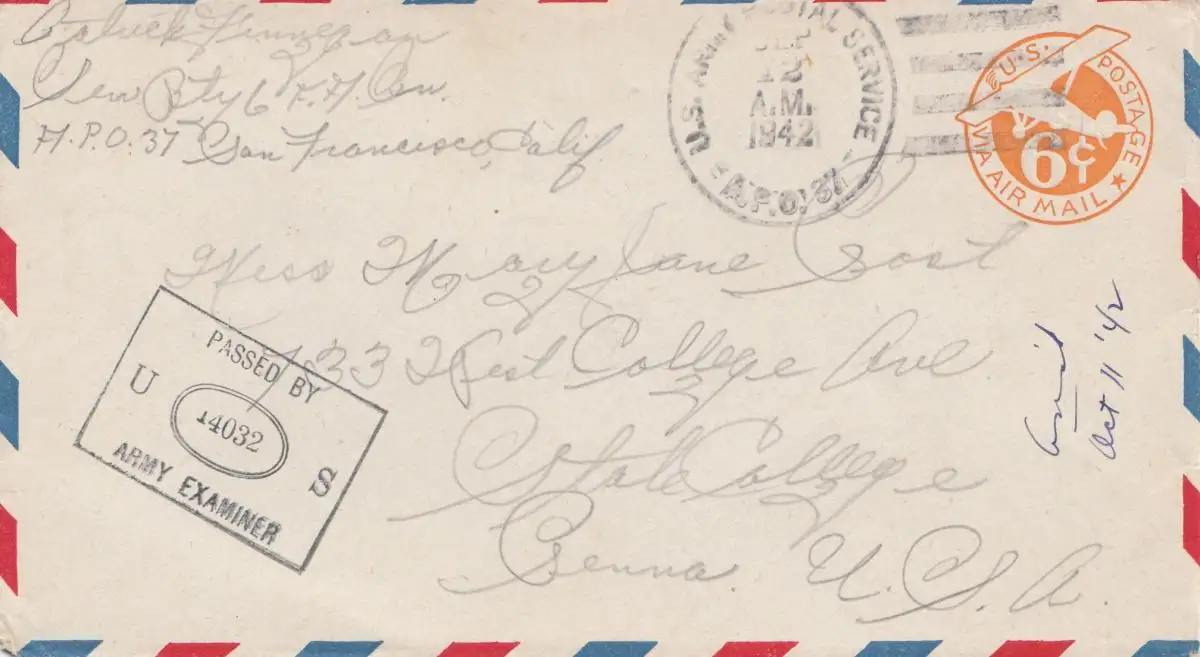 Patrick Finnegan
Serv Bty 6 F.A. Bn.
A.P.O. 37 San Francisco, Calif
U.S. ARMY POSTAL SERVICE
A.M.
1942
A.P.O. 37
U.S. POSTAGE
6¢
VIA AIR MAIL
Miss Mary Jane
733 West College Ave
State College
Penna U.S.A.
PASSED BY
U 14032 S
ARMY EXAMINER
Ans'd
Oct 11 '42